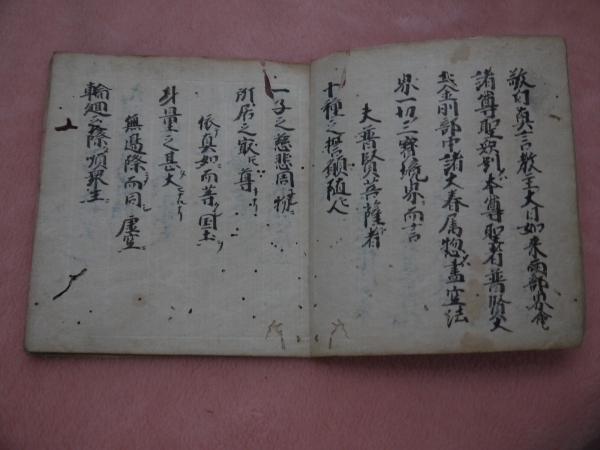 敬白真言教主大日如来両部界会
諸尊聖衆別本尊聖者普賢大
士金剛部中諸大眷属惣盡空法
界一切三寳境界而言
夫普賢菩薩者
十種之願随人
一子之慈悲同物
所居之 尊
依真如而等国土
身量之甚大
無邊際而同虚空
輪廻之際 衆生